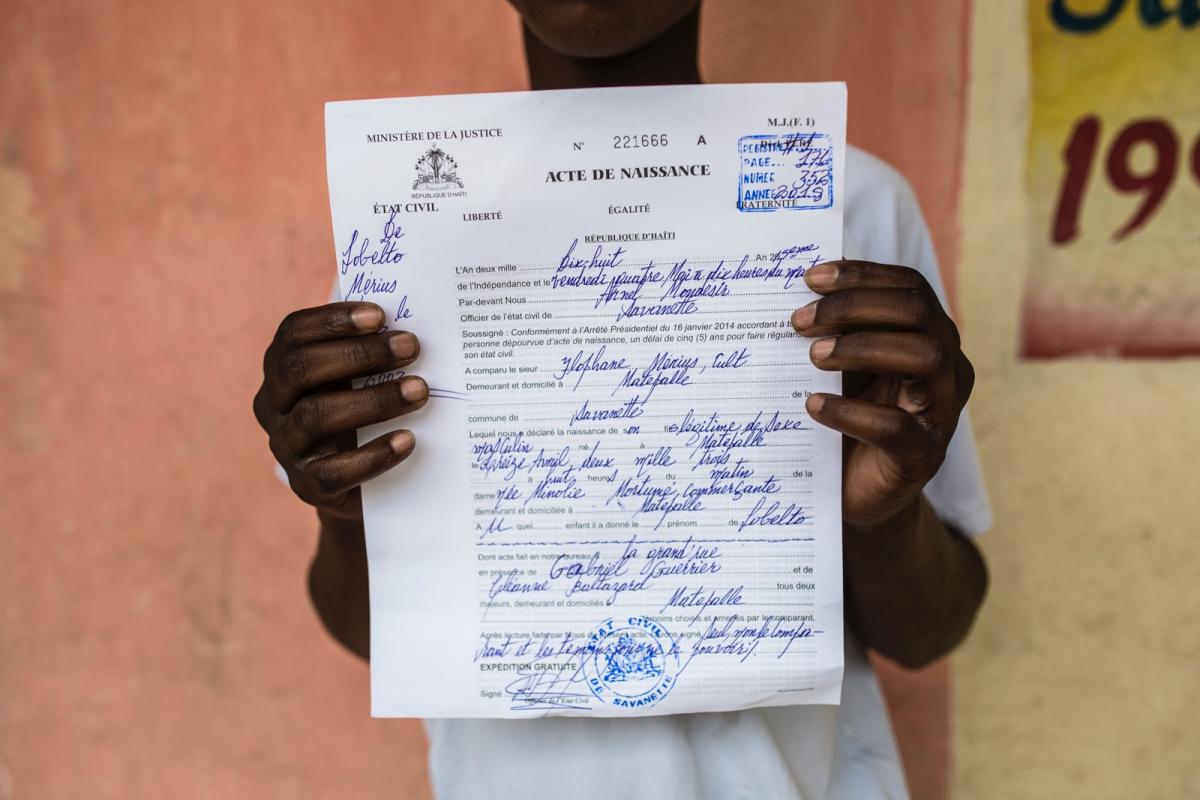 MINISTÈRE DE LA JUSTICE
RÉPUBLIQUE D'HAÏTI
ÉTAT CIVIL
N° 221666 A
M.J.(F. 1)
ACTE DE NAISSANCE
REGISTRE
PAGE... 176
NUMER 352
ANNEE 2018
LIBERTÉ ÉGALITÉ FRATERNITÉ
RÉPUBLIQUE D'HAÏTI
De
Lobelto
Mérius
le
L'An deux mille Dix-huit An 215eme
de l'Indépendance et le Vendredi quatre Mai à dix heures du mat
Par-devant Nous
Officier de l'état civil de Savanette
Soussigné : Conformément à l'Arrêté Présidentiel du 16 janvier 2014 accordant à
personne dépourvue d'acte de naissance, un délai de cinq (5) ans pour faire régular
son état civil.
A comparu le sieur Ylophane Mérius, Cult
Demeurant et domicilié à Matefalle
de la
commune de Savanette
Lequel nous a déclaré la naissance de son fils légitime de Sexe
masculin né à Matefalle
le treize Avril deux mille trois
à huit heures du matin de la
dame née Minotie Mortumé, commerçante
demeurant et domiciliée à Matefalle
A U quel enfant il a donné le prénom de Lobelto
Dont acte fait en notre bureau à la grand'rue
en présence de Gabriel Guerrier et de
Cléanne Baltazard tous deux
majeurs, demeurant et domiciliés à Matefalle
témoins choisis et amenés par le comparant.
Après lecture faite par Nous du présent acte, avons signé seul, non le compa-
rant et les témoins pour ne le pouvoir.
EXPÉDITION GRATUITE
Signé
Officier de l'Etat Civil
ETAT CIVIL
DE SAVANETTE
199